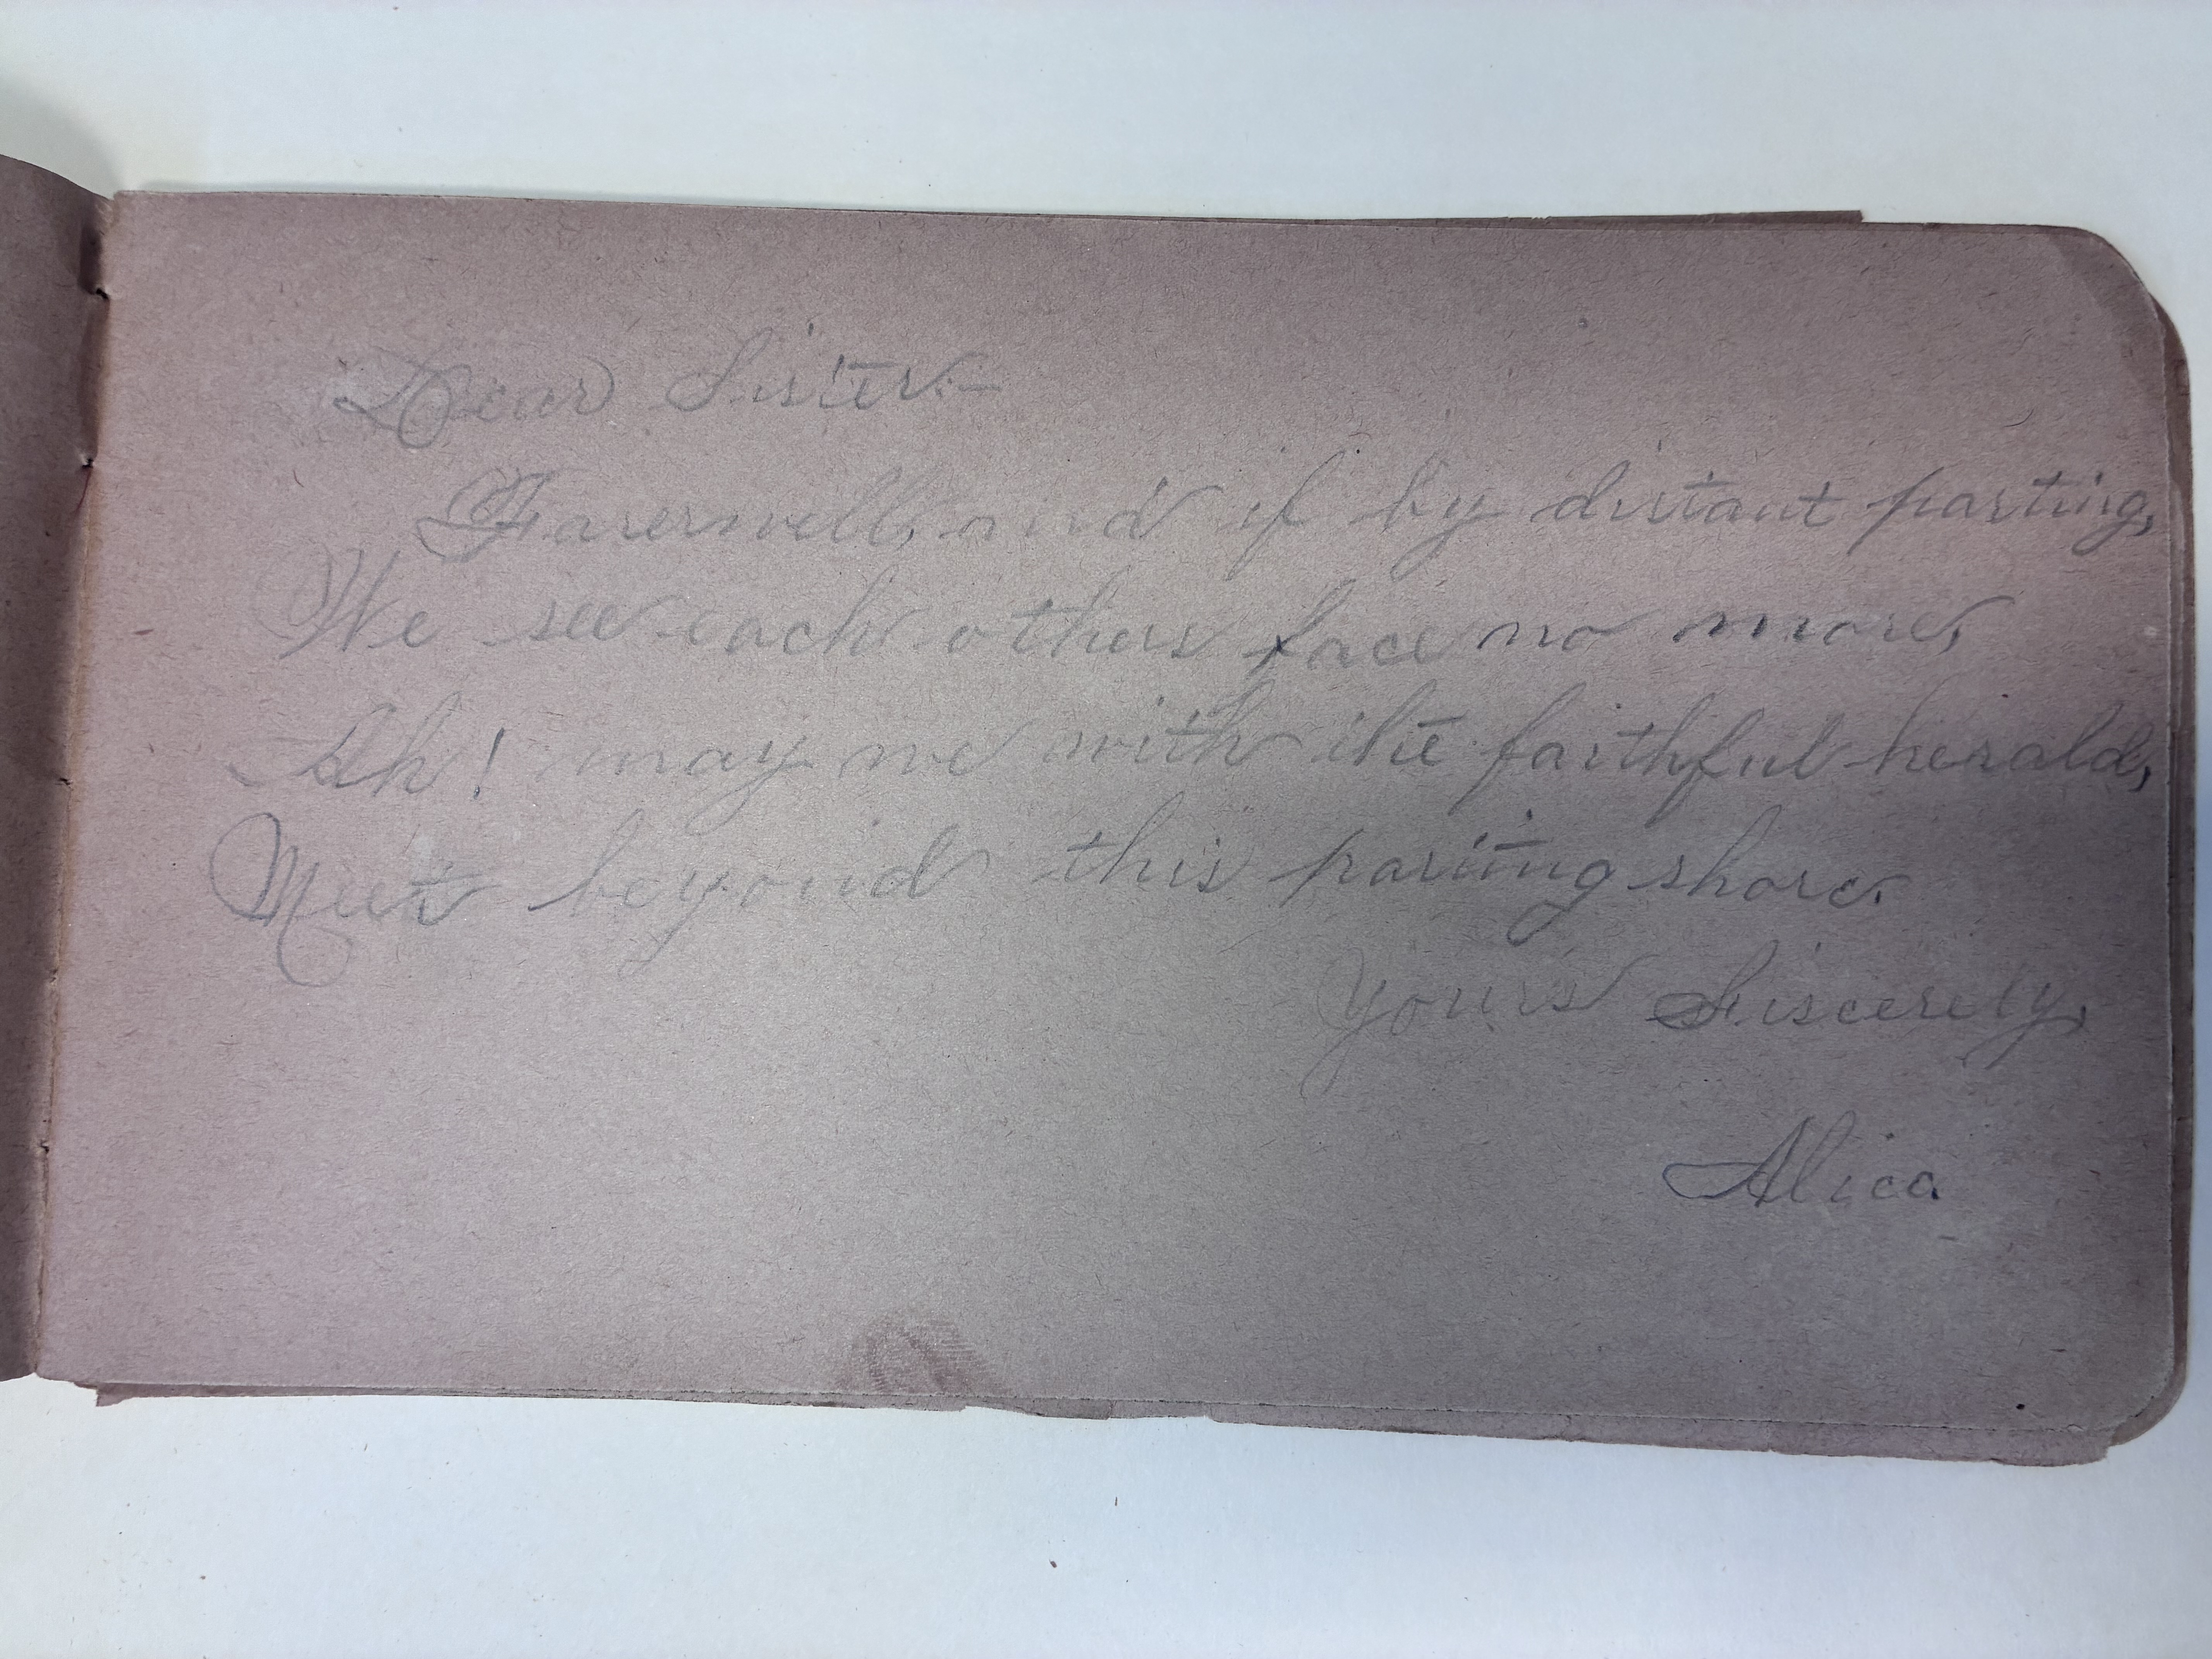 Dear Sister:—
Farerwell, and if by distant parting,
We see each others face no more,
Ah! may we with the faithful herald,
Meet beyond this parting shore.
Yours Siscerely,
Alica